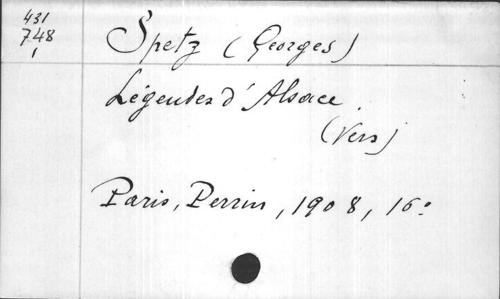 431
748
1
Spetz (Georges)
Légendes d'Alsace.
(Vers)
Paris, Perrin, 1908, 16º